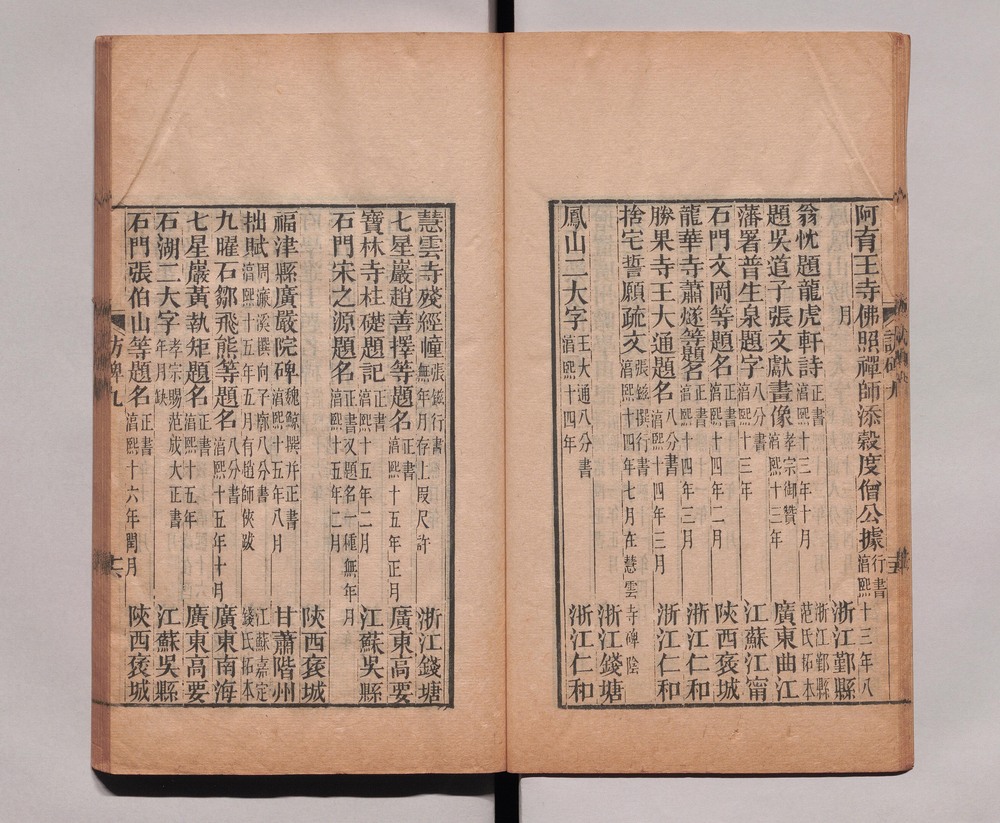 阿育王寺佛照禪師添穀度僧公據行書淳熙十三年八
月 浙江鄞縣
翁忱題龍虎軒詩正書淳熙十三年十月 浙江鄞縣范氏拓本
題吳道子張文獻畫像孝宗御贊淳熙十三年 廣東曲江
藩署普生泉題字八分書淳熙十三年 江蘇江甯
石門文岡等題名正書淳熙十四年二月 陝西褒城
龍華寺蕭燧等題名正書淳熙十四年三月 浙江仁和
勝果寺王大通題名八分書淳熙十四年三月 浙江仁和
捨宅誓願疏文張鎡撰行書淳熙十四年七月在慧雲寺碑陰 浙江錢塘
鳳山二大字王大通八分書淳熙十四年 浙江仁和
慧雲寺殘經幢張鎡行書無年月存上段尺許 浙江錢塘
七星巖趙善擇等題名正書淳熙十五年正月 廣東高要
寶林寺柱礎題記正書淳熙十五年二月 江蘇吳縣
石門宋之源題名正書又題名一種無年月淳熙十五年二月 陝西褒城
福津縣廣嚴院碑魏鯨撰幷正書淳熙十五年八月 甘肅階州
拙賦周濂溪撰向子廓八分書淳熙十五年五月有趙師俠跋 江蘇嘉定錢氏拓本
九曜石鄒飛熊等題名八分書淳熙十五年十月 廣東南海
七星巖黃執矩題名正書淳熙十五年 廣東高要
石湖二大字孝宗賜范成大正書年月缺 江蘇吳縣
石門張伯山等題名正書淳熙十六年閏月 陝西褒城
訪碑九